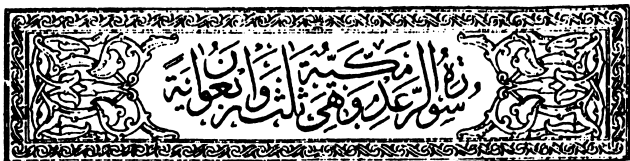 سورة الرعد مكية وهى ثلثة واربعون اية